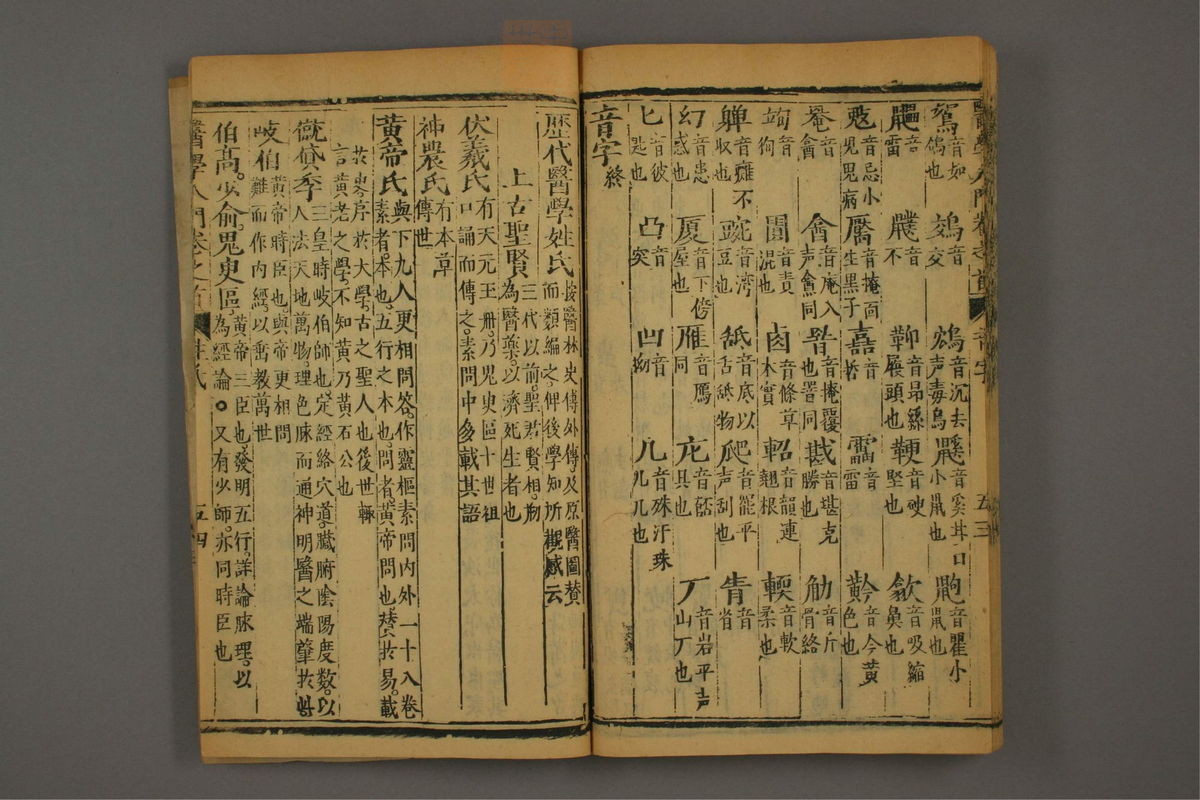 醫學入門卷之首 音字 五三
鴽音如鴿也 鵁音交 鴆音沉去声毒鳥 鼷音奚甘口小鼠也 鼩音瞿小鼠也
音雷 音不 鞋履頭也 鞕音硬堅也 音吸縮鼻也
鬾音忌小兒鬼病 黶音掩面生黑子 音哲 音雷 黅音今黃色也
音禽 音庵入声禽同 音掩覆也罯同 戡音堪克勝也 音斤骨絡
音狗 音責混也 鹵音條草木實 軺音韻連翹根 輭音軟柔也
音癱不收也 豌音湾豆也 舐音底以舌舐物 爬音罷平声刮也 音
幻音患惑也 厦音下傍屋也 雁音鴈同 音具也 音岩平声山丆也
匕音彼匙也 凸音突 凹音拗 几音殊汙珠几几也
音字終
歷代醫學姓氏 按醫林史傳外傳及原醫圖贊而類編之俾後學知所觀感云
上古聖賢 三代以前聖君賢相刱為醫藥以濟死生者也
伏羲氏 有天元玉冊乃鬼臾區十世祖口誦而傳之素問中多載其語
神農氏 有本草傳世
黃帝氏 與下九人更相問答作靈樞素問內外一十八卷素者本也五行之本也問者黃帝問也賛扵易載
扵史序扵大學古之聖人也後世輙言黃老之學不知黃乃黃石公也
僦貸季 三皇時岐伯師也定經絡穴道臟腑陰陽度數以人法天地萬物理色脉而通神明醫之端肇扵此
岐伯 黃帝時臣也與帝更相問難而作內經以垂教萬世
伯高少俞鬼臾區 黃帝三臣也發明五行詳論脉理以為經論○又有少師亦同時臣也
醫學入門卷之首 姓氏 五四